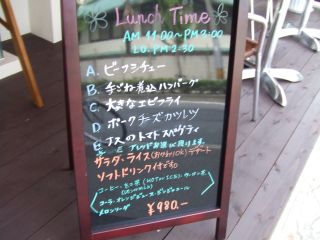 Lunch Time
AM 11:00～PM 3:00
LO. PM 2:30
A. ビーフシチュー
B. 手ごね煮込ハンバーグ
C. 大きなエビフライ
D. ポークチーズカツレツ
E. ナスのトマトスパゲティ
サラダ・ライス(おかわりOK) デザート
ソフトドリンク付き
コーヒー・紅茶 (HOT or ICE)・ウーロン茶
コーラ・オレンジジュース・ジンジャエール
メロンソーダ
￥980.-